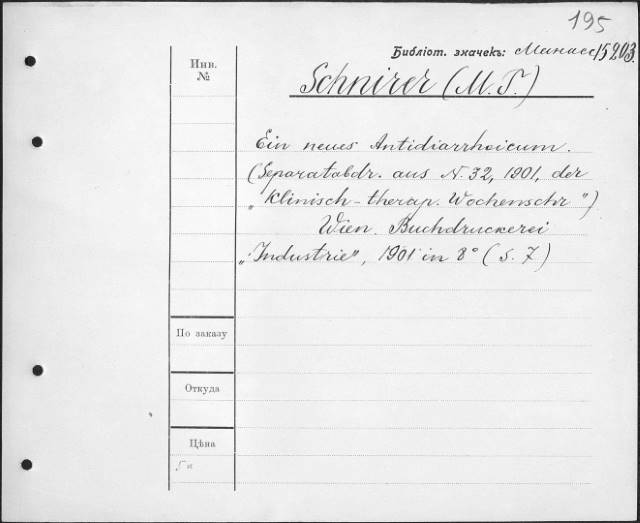 195
Библіот. значекъ: Манасс 15203.
Инв.
№
Schnirer (M. T.)
Ein neues Antidiarrhoicum.
(Separatabdr. aus N. 32, 1901, der
„Klinisch-therap. Wochenschr")
Wien. Buchdruckerei
„Industrie", 1901 in 8° (S. 7)
По заказу
Откуда
Цѣна
5 к